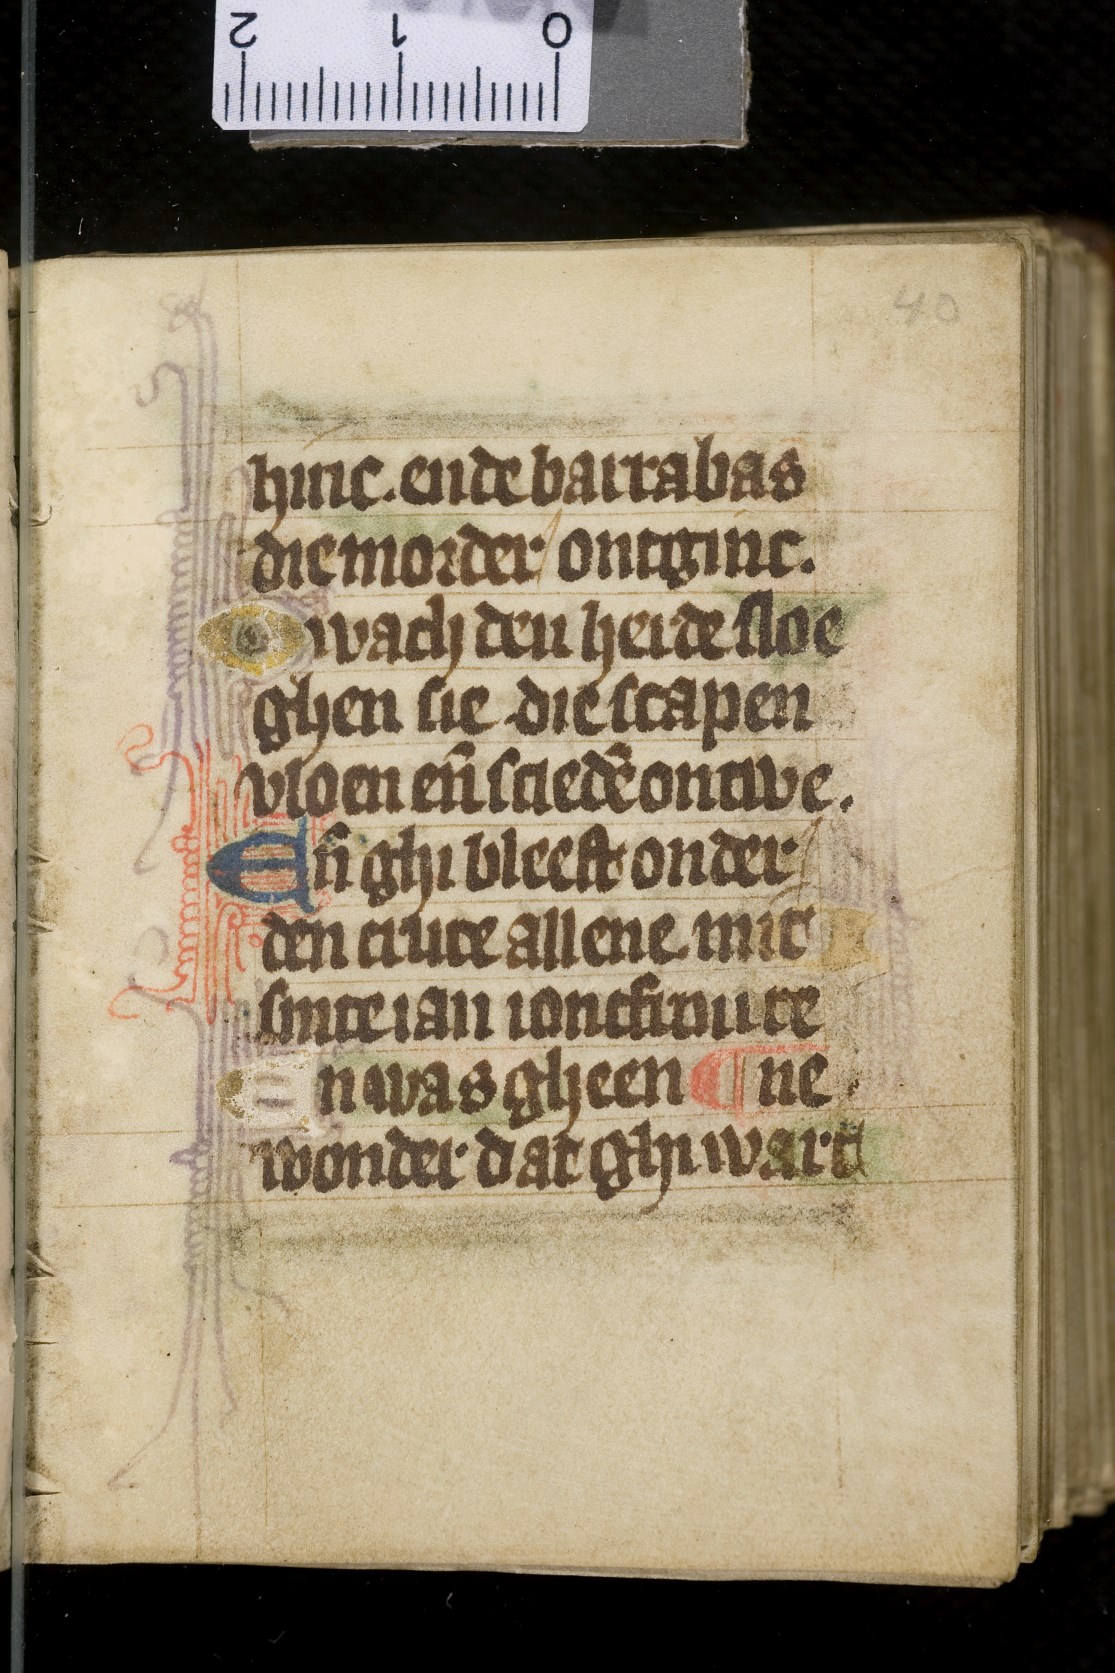 2 1 0
40
hinc. ende barrabas
die morder ontginc.
O wach den herde sloe
ghen sie die scapen
vloen en̄ sciedē ontwe.
En̄ ghi bleeft onder
den cruce allene mit
sinte ian ioncfrouwe
En was gheen ¶ ne
wonder dat ghi wart